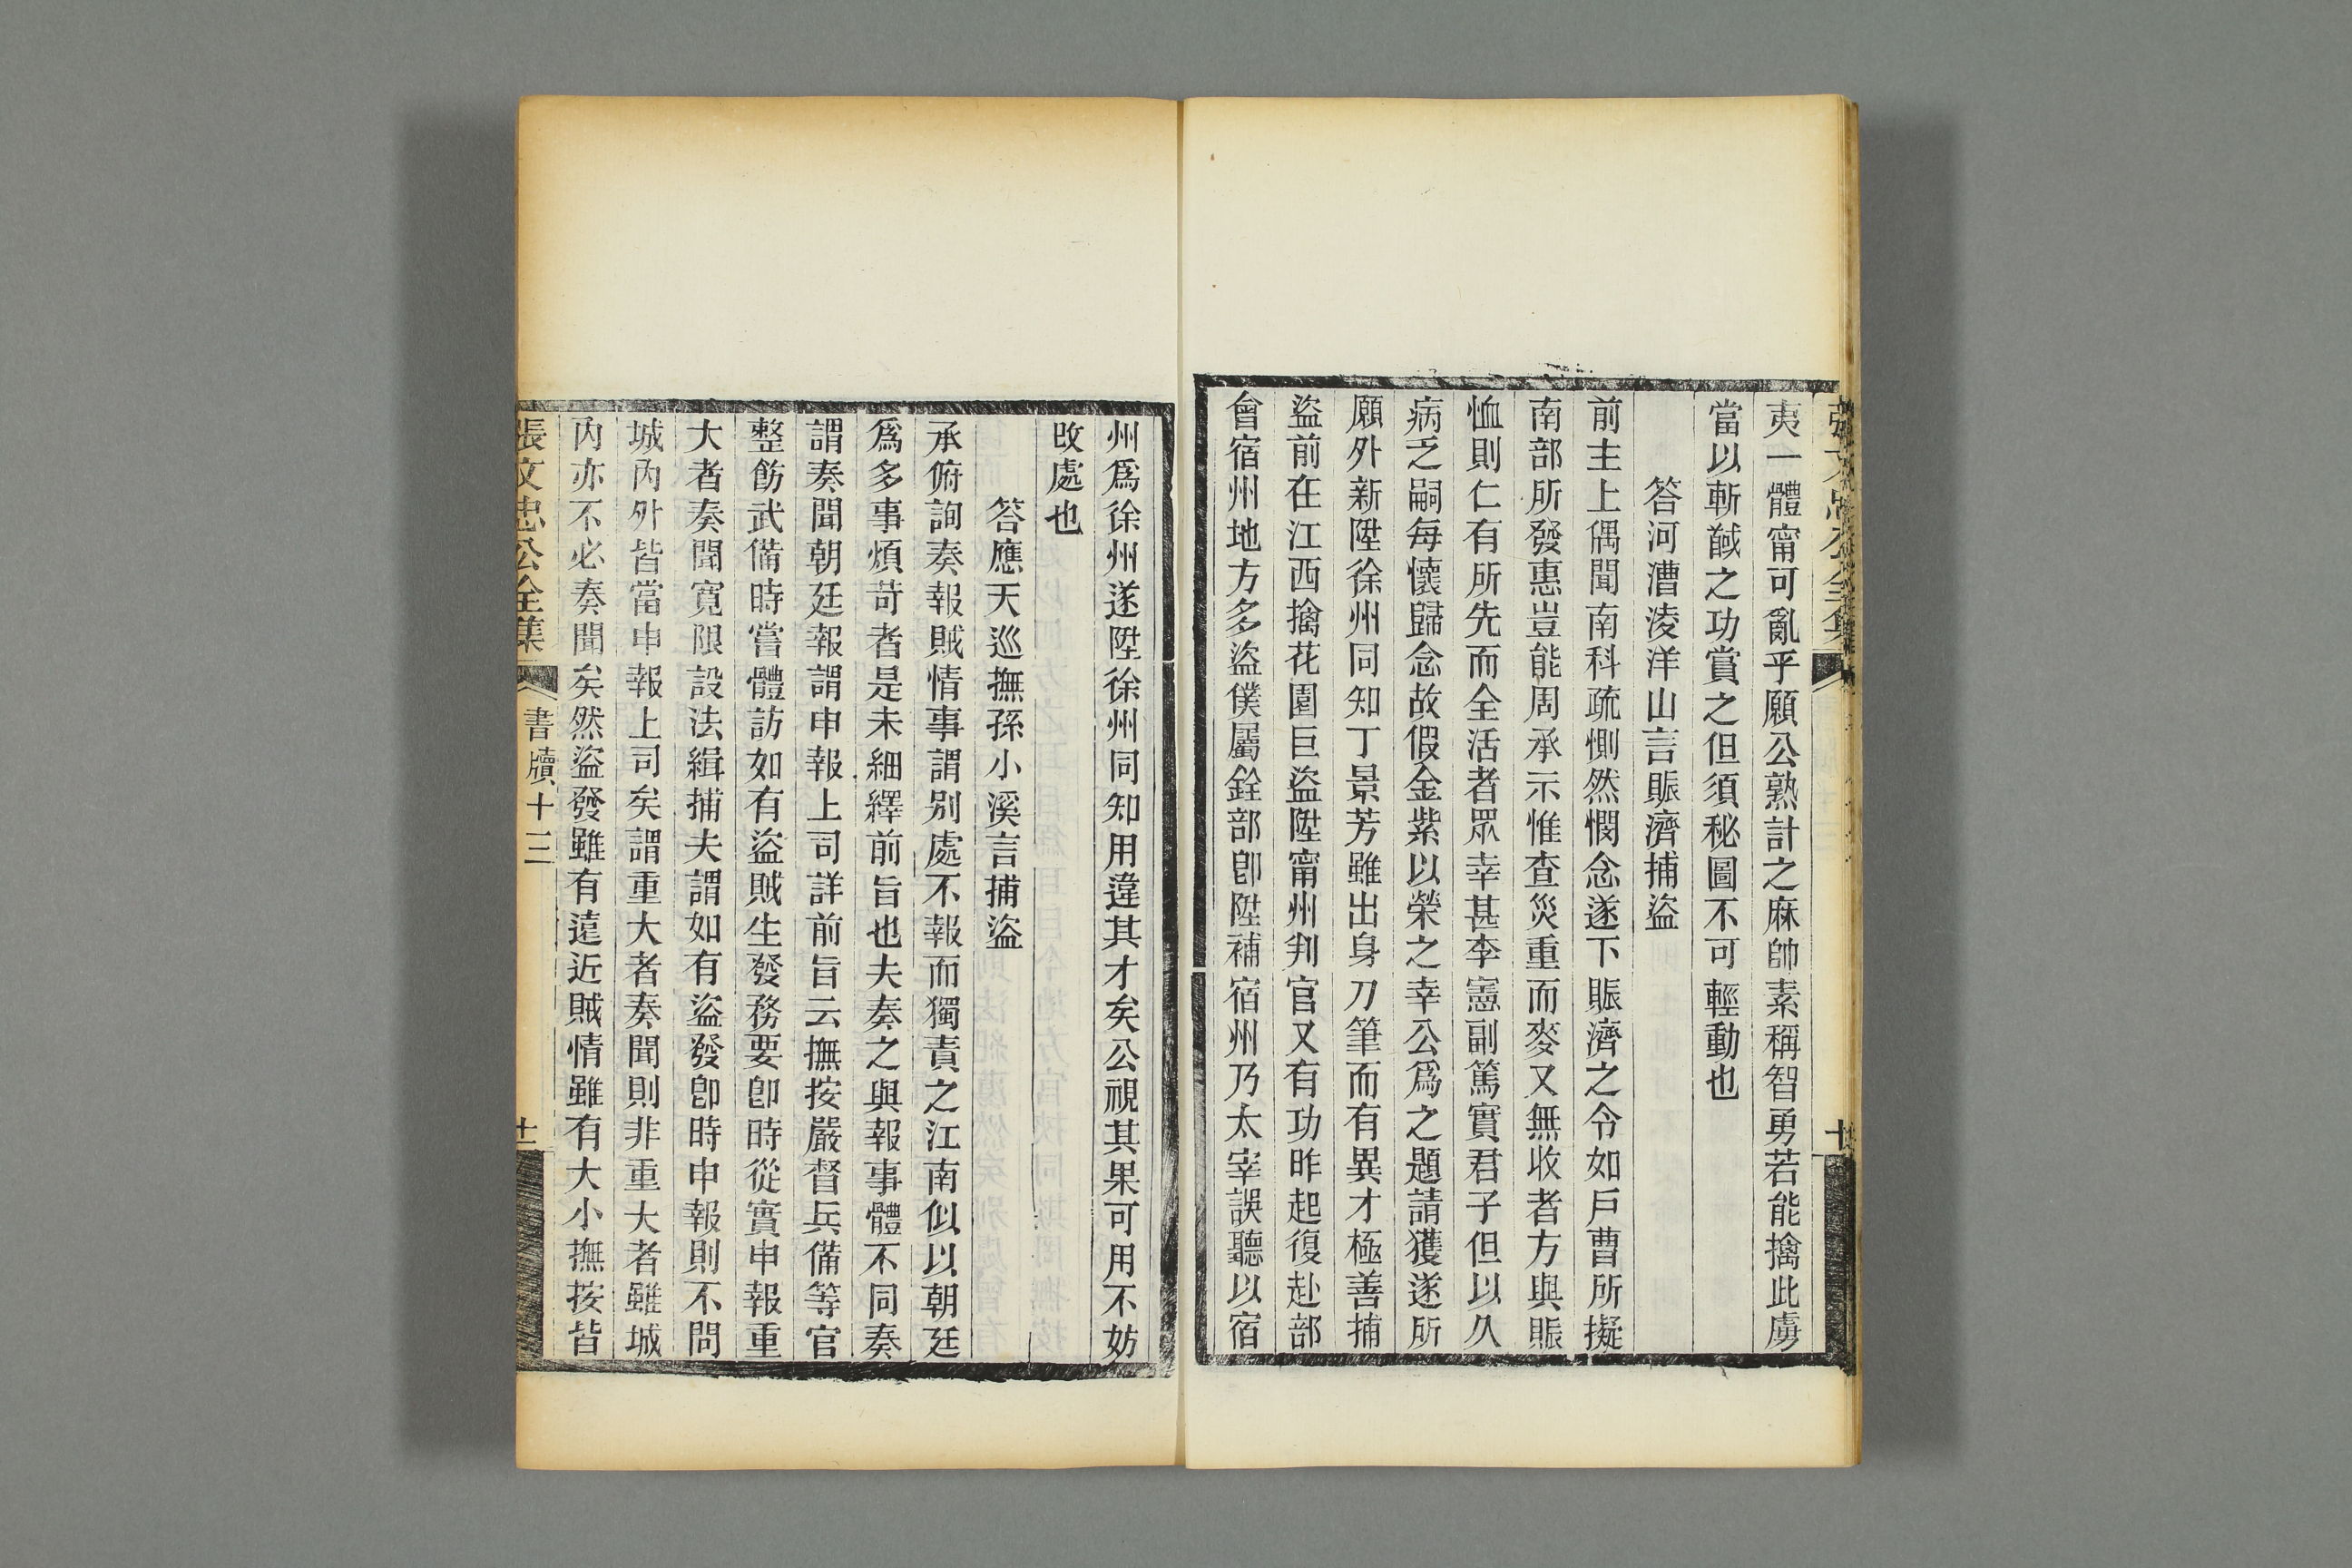 夷一體甯可亂乎願公熟計之麻帥素稱智勇若能擒此虜
當以斬馘之功賞之但須秘圖不可輕動也
答河漕淩洋山言賑濟捕盜
前主上偶聞南科疏惻然憫念遂下賑濟之令如戶曹所擬
南部所發惠豈能周承示惟查災重而麥又無收者方與賑
恤則仁有所先而全活者眾幸甚李憲副篤實君子但以久
病乏嗣每懷歸念故假金紫以榮之幸公爲之題請獲遂所
願外新陞徐州同知丁景芳雖出身刀筆而有異才極善捕
盜前在江西擒花園巨盜陞甯州判官又有功昨起復赴部
會宿州地方多盜僕屬銓部卽陞補宿州乃太宰誤聽以宿
州爲徐州遂陞徐州同知用違其才矣公視其果可用不妨
改處也
答應天巡撫孫小溪言捕盜
承俯詢奏報賊情事謂别處不報而獨責之江南似以朝廷
爲多事煩苛者是未細繹前旨也夫奏之與報事體不同奏
謂奏聞朝廷報謂申報上司詳前旨云撫按嚴督兵備等官
整飭武備時嘗體訪如有盜賊生發務要卽時從實申報重
大者奏聞寛限設法緝捕夫謂如有盜發卽時申報則不問
城內外皆當申報上司矣謂重大者奏聞則非重大者雖城
內亦不必奏聞矣然盜發雖有遠近賊情雖有大小撫按皆
張文忠公全集
書牘十三
十一